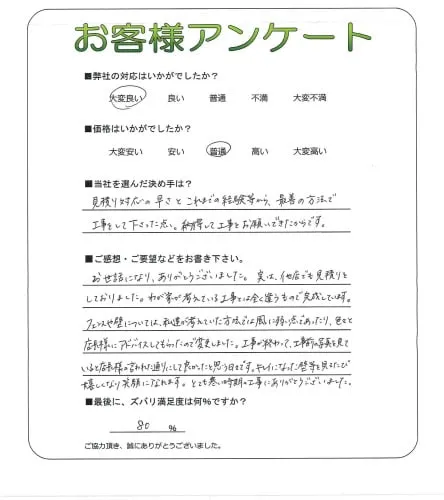 お客様アンケート
■弊社の対応はいかがでしたか？
大変良い 良い 普通 不満 大変不満
■価格はいかがでしたか？
大変安い 安い 普通 高い 大変高い
■当社を選んだ決め手は？
見積り対応の早さと これまでの経験等から、最善の方法で
工事をして下さった点。納得して工事をお願いできたからです。
■ご感想・ご要望などをお書き下さい。
お世話になり、ありがとうございました。実は、他店でも見積りを
しておりました。わが家が考えている工事とは全く違うもので完成しています。
フェンスや壁については、私達が考えていた方法では風に弱い点であったり、色々と
店長様にアドバイスしてもらったので変更しました。工事が終わって、工事前の写真を見て
いると店長様の言われた通りにして良かったと思う日々です。キレイになった壁等を見るたび
嬉しくなり笑顔になれます。とても寒い時期の工事にありがとうございました。
■最後に、ズバリ満足度は何％ですか？
80 %
ご協力頂き、誠にありがとうございました。